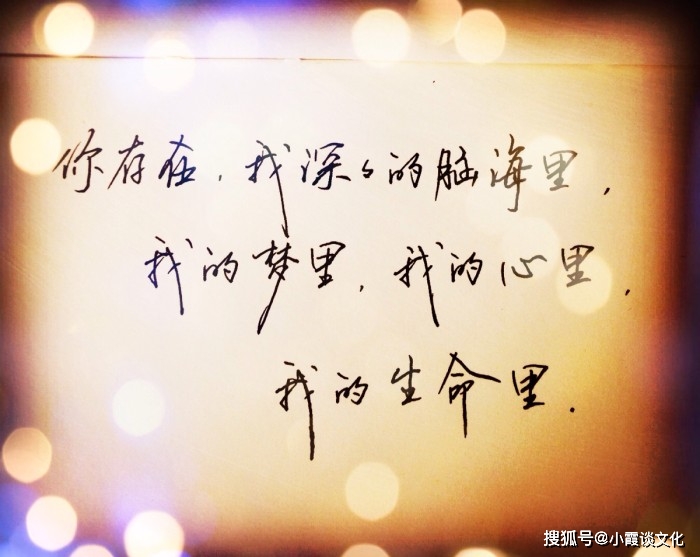 你存在，我深々的脑海里，
我的梦里，我的心里，
我的生命里．
搜狐号@小霞谈文化